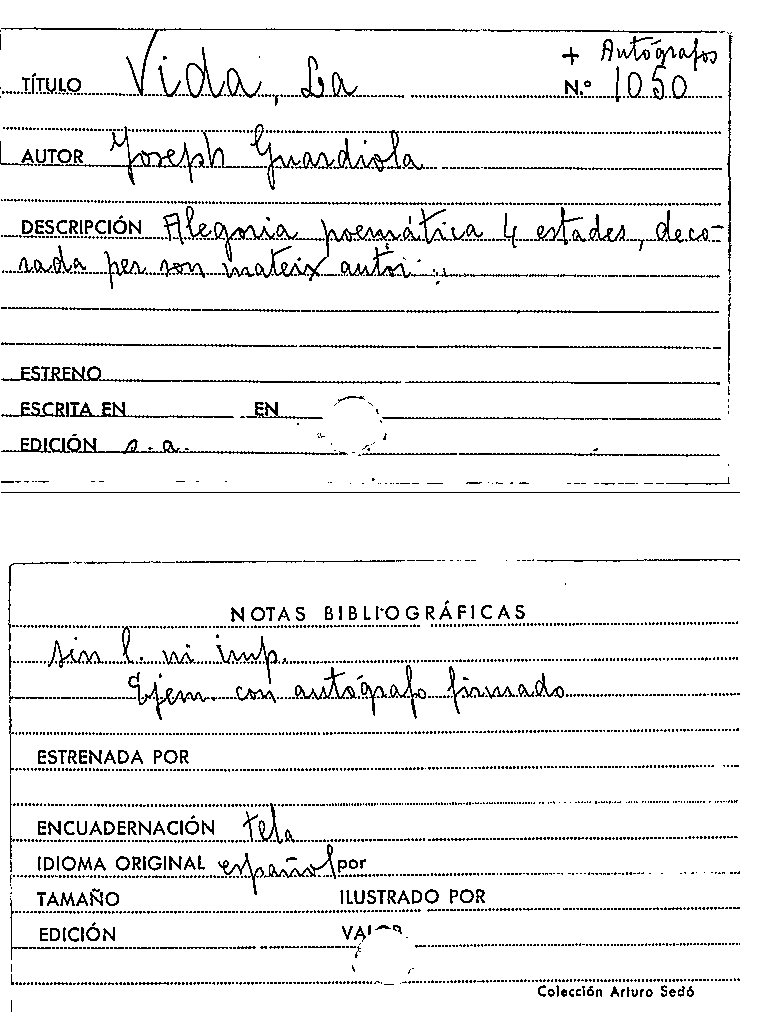 + Autógrafos
TÍTULO Vida, La N.º 1050
AUTOR Joseph Guardiola
DESCRIPCIÓN Alegoria poemática 4 estades, deco-
rada per son mateix autor
ESTRENO
ESCRITA EN EN
EDICIÓN s.a.
NOTAS BIBLIOGRÁFICAS
sin l. ni imp.
Ejem. con autógrafo firmado
ESTRENADA POR
ENCUADERNACIÓN tela
IDIOMA ORIGINAL español por
TAMAÑO ILUSTRADO POR
EDICIÓN VALOR
Colección Arturo Sedó